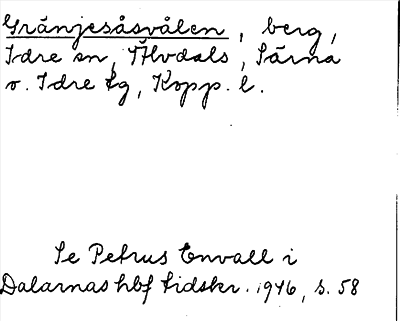 Gränjesåsvålen, berg,
Idre sn, Älvdals, Särna
o. Idre tg, Kopp. l.
Se Petrus Envall i
Dalarnas hbf tidskr. 1946, s. 58